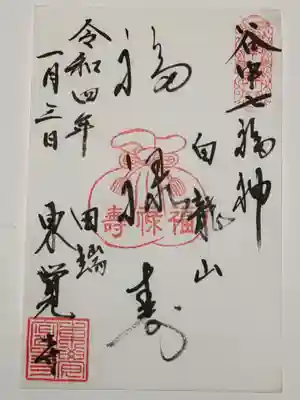 谷中七福神
白龍山
福禄寿
壽祿福
令和四年
一月三日
田端
東覚寺